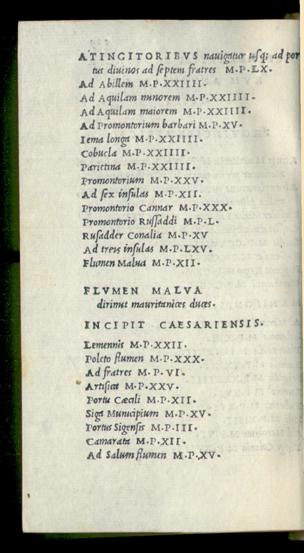 ATINGITORIBVS nauigatur usq; ad por
tus diuinos ad septem fratres M.P.LX.
Ad Abillem M.P.XXIIII.
Ad Aquilam minorem M.P.XXIIII.
Ad Aquilam maiorem M.P.XXIIII.
Ad Promontorium barbari M.P.XV.
Iema longa M.P.XXIIII.
Cobucla M.P.XXIIII.
Parietina M.P.XXIIII.
Promontorium M.P.XXV.
Ad sex insulas M.P.XII.
Promontorio Cannar M.P.XXX.
Promontorio Rusaddi M.P.L.
Rusadder Conalia M.P.XV
Ad treis insulas M.P.LXV.
Flumen Malua M.P.XII.
FLVMEN MALVA
dirimit mauritanices duces.
INCIPIT CAESARIENSIS.
Lemennis M.P.XXII.
Poleto flumen M.P.XXX.
Ad fratres M.P.VI.
Artisicā M.P.XXV.
Portu Caecili M.P.XII.
Siga Municipium M.P.XV.
Portus Sigensis M.P.III.
Camarata M.P.XII.
Ad Salum flumen M.P.XV.